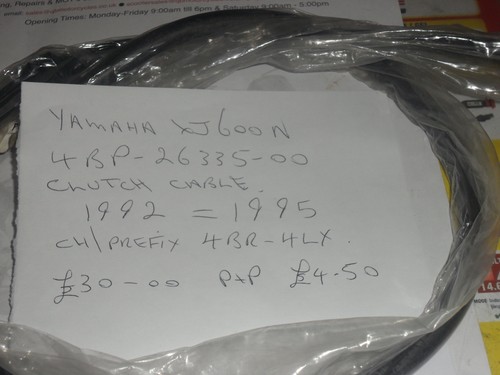 ng, Repairs & MOT
Opening Times: Monday-Friday 9:00am till 6pm & Saturday 9:00am - 5:00pm
YAMAHA XJ600N
4BP-26335-00
CLUTCH CABLE.
1992 = 1995
CH/PREFIX 4BR-4LX.
£30-00 P+P £4.50